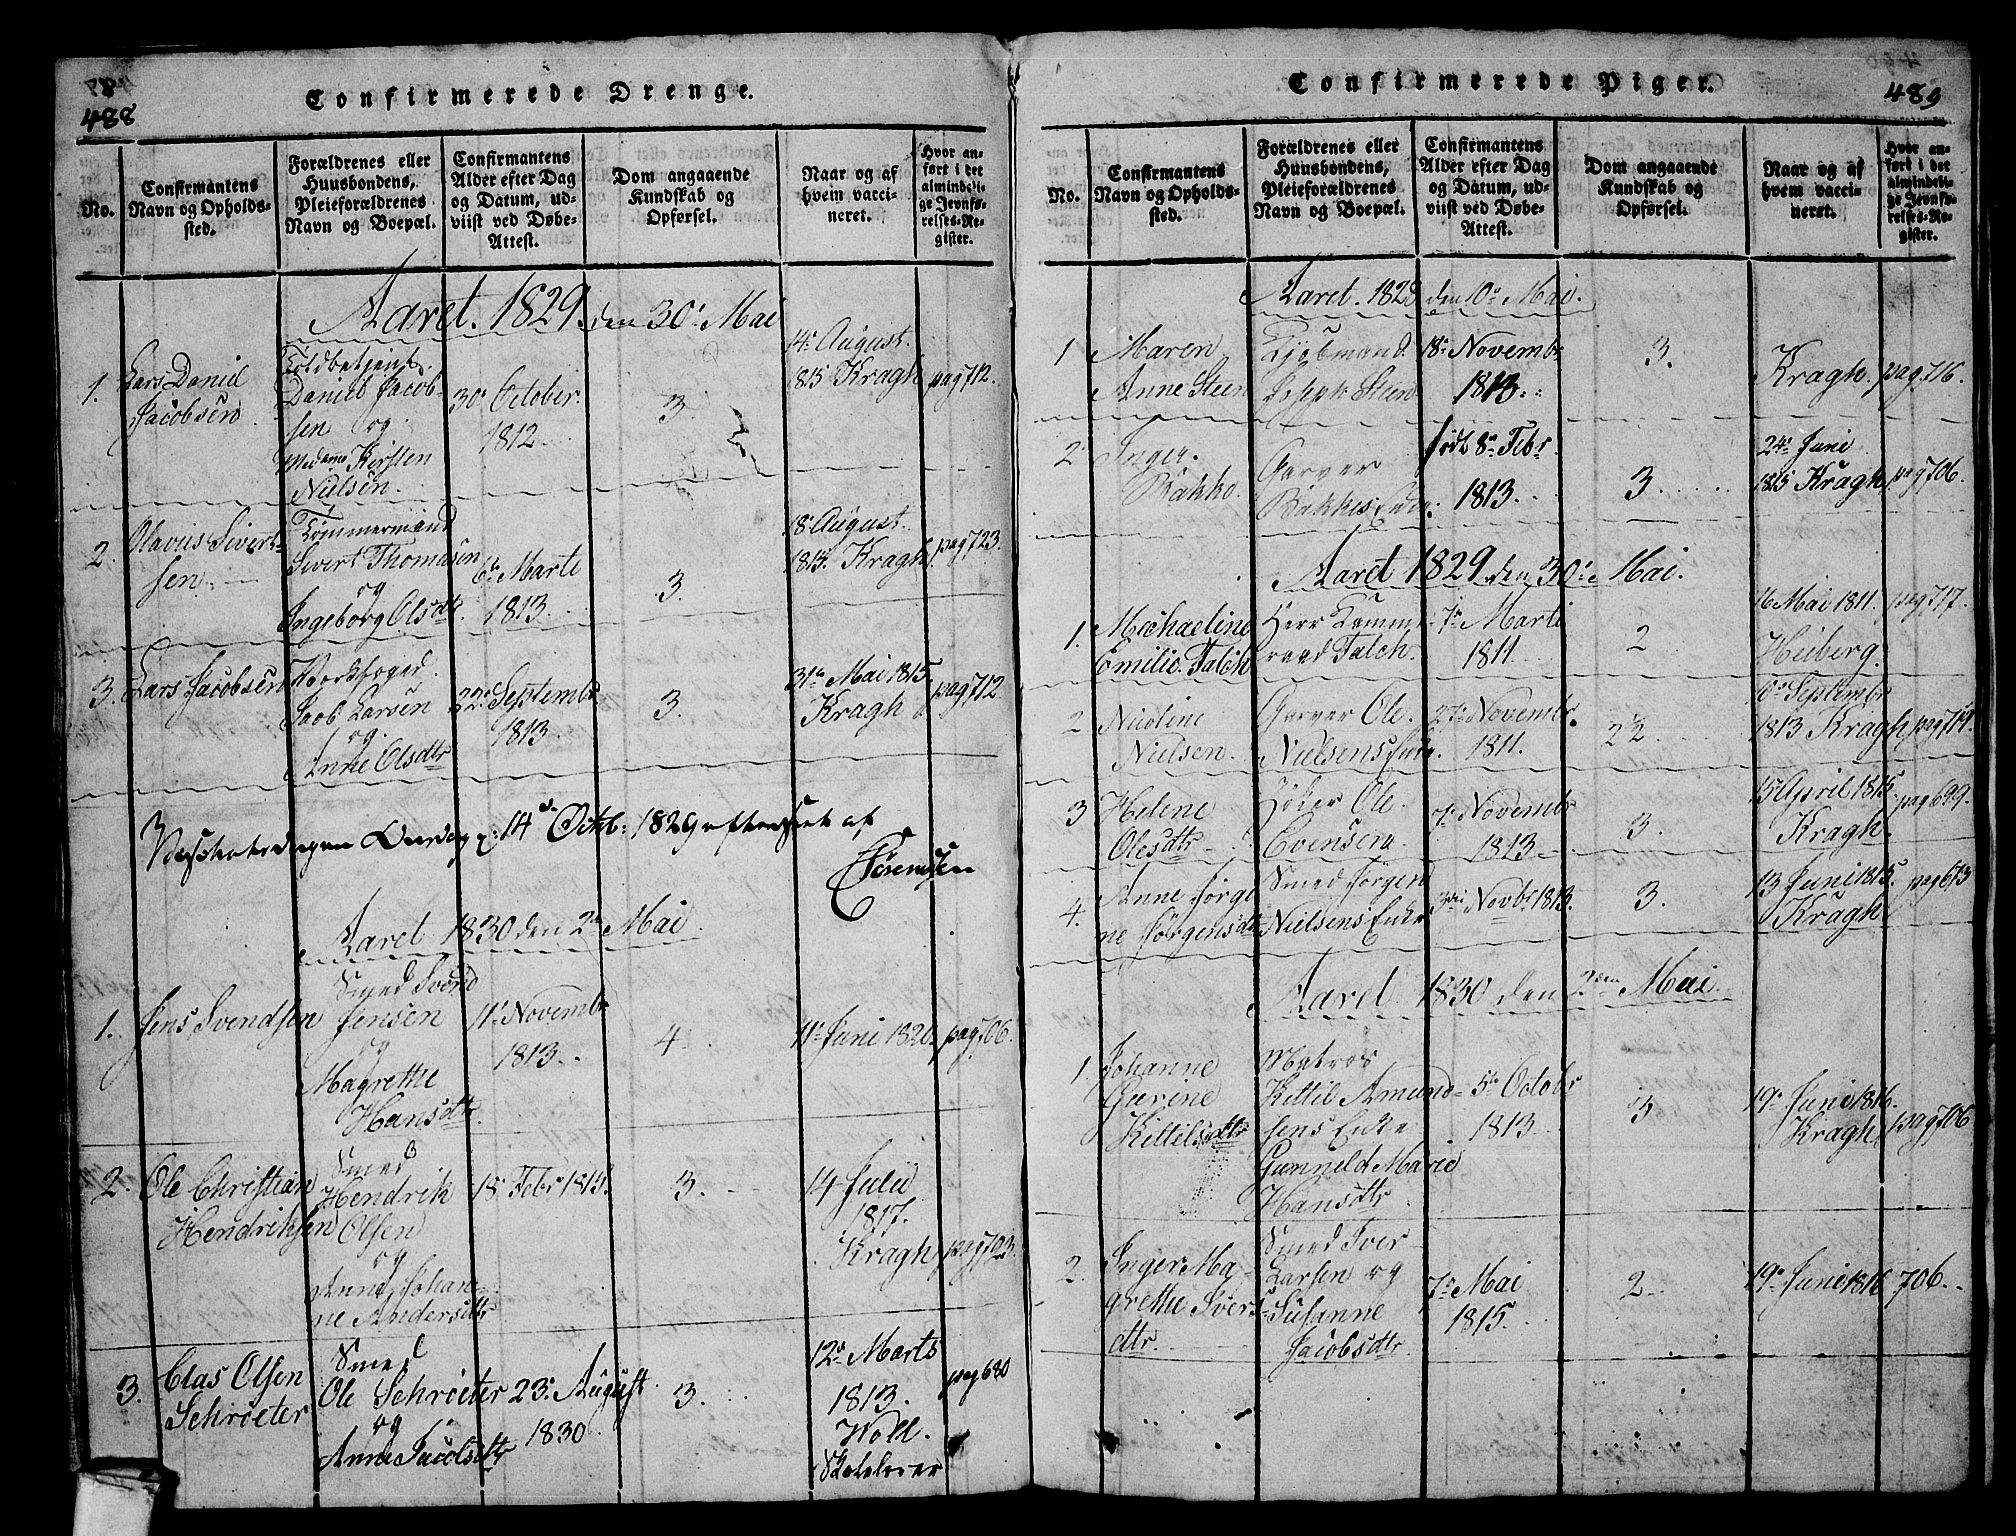 488
Confirmerede Drenge.
No.
Confirmantens
Navn og Opholds-
sted.
Forældrenes eller
Huusbondens,
Pleieforældrenes
Navn og Boepæl.
Confirmantens
Alder efter Dag
og Datum, ud-
viist ved Døbe-
Attest.
Dom angaaende
Kundskab og
Opførsel.
Naar og af
hvem vacci-
neret.
Hvor an-
ført i det
almindeli-
ge Jevnfø-
relses-Re-
gister.
Aaret. 1829. den 30. Mai
1.
Lars Daniel
Jacobsen
Toldbetjent
Daniel Jacob-
sen og
Madame Kirsten
Nielsen.
30. October.
1812
3.
14. August.
1815 Kragh
pag 712.
2.
Olavus Sivert-
sen
Tømmermand
Sivert Thomasen
og
Ingeborg Olsdtr.
6. Marti
1813.
3.
18. August.
1815. Kragh
pag 723.
3.
Lars Jacobsen
Jacob Larsen
og
Anne Olsdtr
22. Septembr
1813.
3.
31. Mai 1815.
Kragh
pag 712
14. Octb: 1829 efterseet af
Sörensen
Aaret 1830 den 2den Mai
1.
Jens Svendsen
Smed Svend
Jensen
og
Magrethe
Hansdtr.
11. Novembr
1813.
4.
11. Juni 1820.
pag 706.
2.
Ole Christian
Hendriksen
Smed
Hendrik
Olsen
og
Anne Johan-
ne Andersdtr
18 Febr 1815.
3.
14 Julii
1817.
Kragh
pag 703.
3.
Clas Olsen
Schroeter
Smed
Ole Schroeter
og
Anne Jacobsdtr
23. August
1830
3.
12. Marts
1813.
Woll.
pag 680
Confirmerede Piger.
489
No.
Confirmantens
Navn og Opholds-
sted.
Forældrenes eller
Huusbondens,
Pleieforældrenes
Navn og Boepæl.
Confirmantens
Alder efter Dag
og Datum, ud-
viist ved Døbe-
Attest.
Dom angaaende
Kundskab og
Opførsel.
Naar og af
hvem vacci-
neret.
Hvor an-
ført i det
almindeli-
ge Jevnfø-
relses-Re-
gister.
Aaret. 1828 den 10. Mai.
1
Maren
Anne Steen
Kjöbmand
Joseph Steen
18. Novembr
1813.
3.
Kragh.
pag. 716.
2
Inger
Bakke.
Garver
Bakkes Enke.
født 8. Febr
1813.
3.
24. Juni
1815 Kragh
pag 706.
Aaret 1829 den 30. Mai.
1.
Michaeline
Emilie Falch
Herr Kamme-
raad Falch.
7. Marti
1811.
2
16 Mai 1811.
Heiberg.
pag 717.
2
Nicoline
Nielsen.
Garver Ole.
Nielsens Enke
27. Novembr.
1811.
2 1/2
10. Septembr
1813 Kragh
pag 719.
3
Helene
Olesdtr
Ole
Evensen
7. Novembr
1813.
3.
15 April 1815
Kragh.
pag 699.
4.
Anne Jörgi-
ne Jörgensdtr
Smed Jörgen
Nielsens Enke
3die Novbr 1813.
3.
13 Juni 1815.
Kragh
pag 673
Aaret. 1830 den 2den Mai
1.
Johanne
Gurine
Kittilsdtr
Matros
Kittil Amund-
sens Enke
Gunneld Marie
Hansdtr.
5. Octobr
1813.
3
19. Juni 1816.
Kragh
pag 706
2.
Inger Ma-
grethe Ivers-
dtr.
Smed Iver
Larsen og
Susanne
Jacobsdtr.
7. Mai
1815.
2
19. Juni 1816
706.